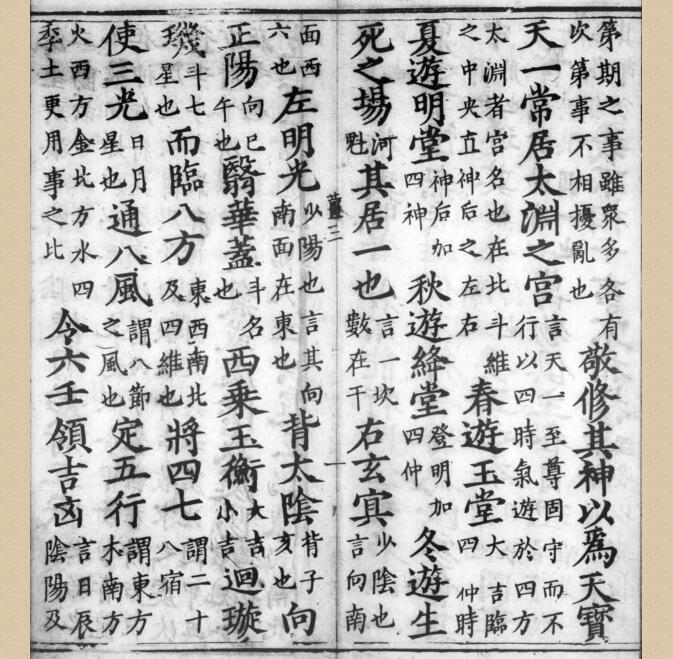 第期之事雖衆多各有次第事不相擾亂也敬修其神以爲天寶
天一常居太淵之宮言天一至尊固守而不行以四時氣遊於四方
太淵者宮名也在北斗維之中央直神后之左右春遊玉堂大吉臨四仲時
夏遊明堂神后加四神秋遊絳堂登明加四仲冬遊生
死之場河魁其居一也言一坎數在干右玄㝠少陰也言向南
面西六也左明光少陽也言其向南面在東也背太陰背子亥也向
正陽向巳午也翳華蓋斗名也西乘玉衡大吉小吉迴璇
璣斗七星也而臨八方東西南北及四維也將四七謂二十八宿
使三光日月星也通八風謂八節之風也定五行謂東方木南方
火西方金北方水四季土更用事之比令六壬領吉凶言日辰陰陽及